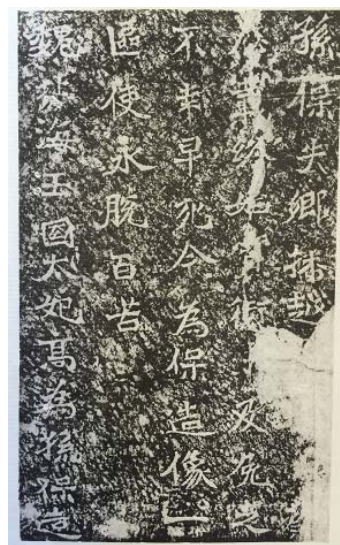 孫保失鄉播越
及
不幸早死今為保造像一
區使永脫百苦
魏北海王國太妃高為孫保造